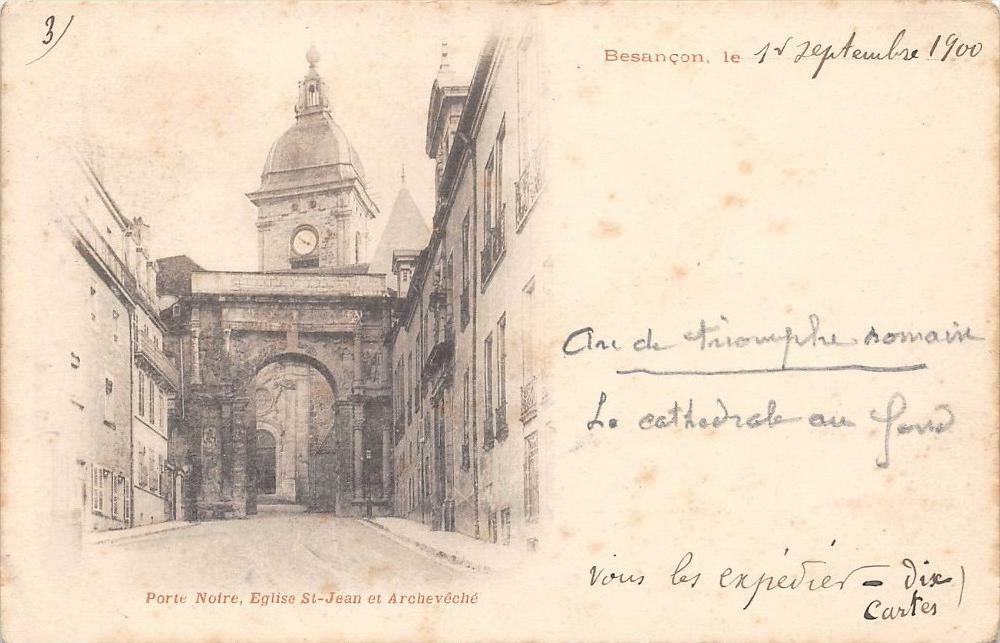 3/
Besançon, le 1r septembre 1900
Arc de triomphe romain
La cathédrale au fond
Vous les expédier - dix
cartes
Porte Noire, Eglise St-Jean et Archevêché